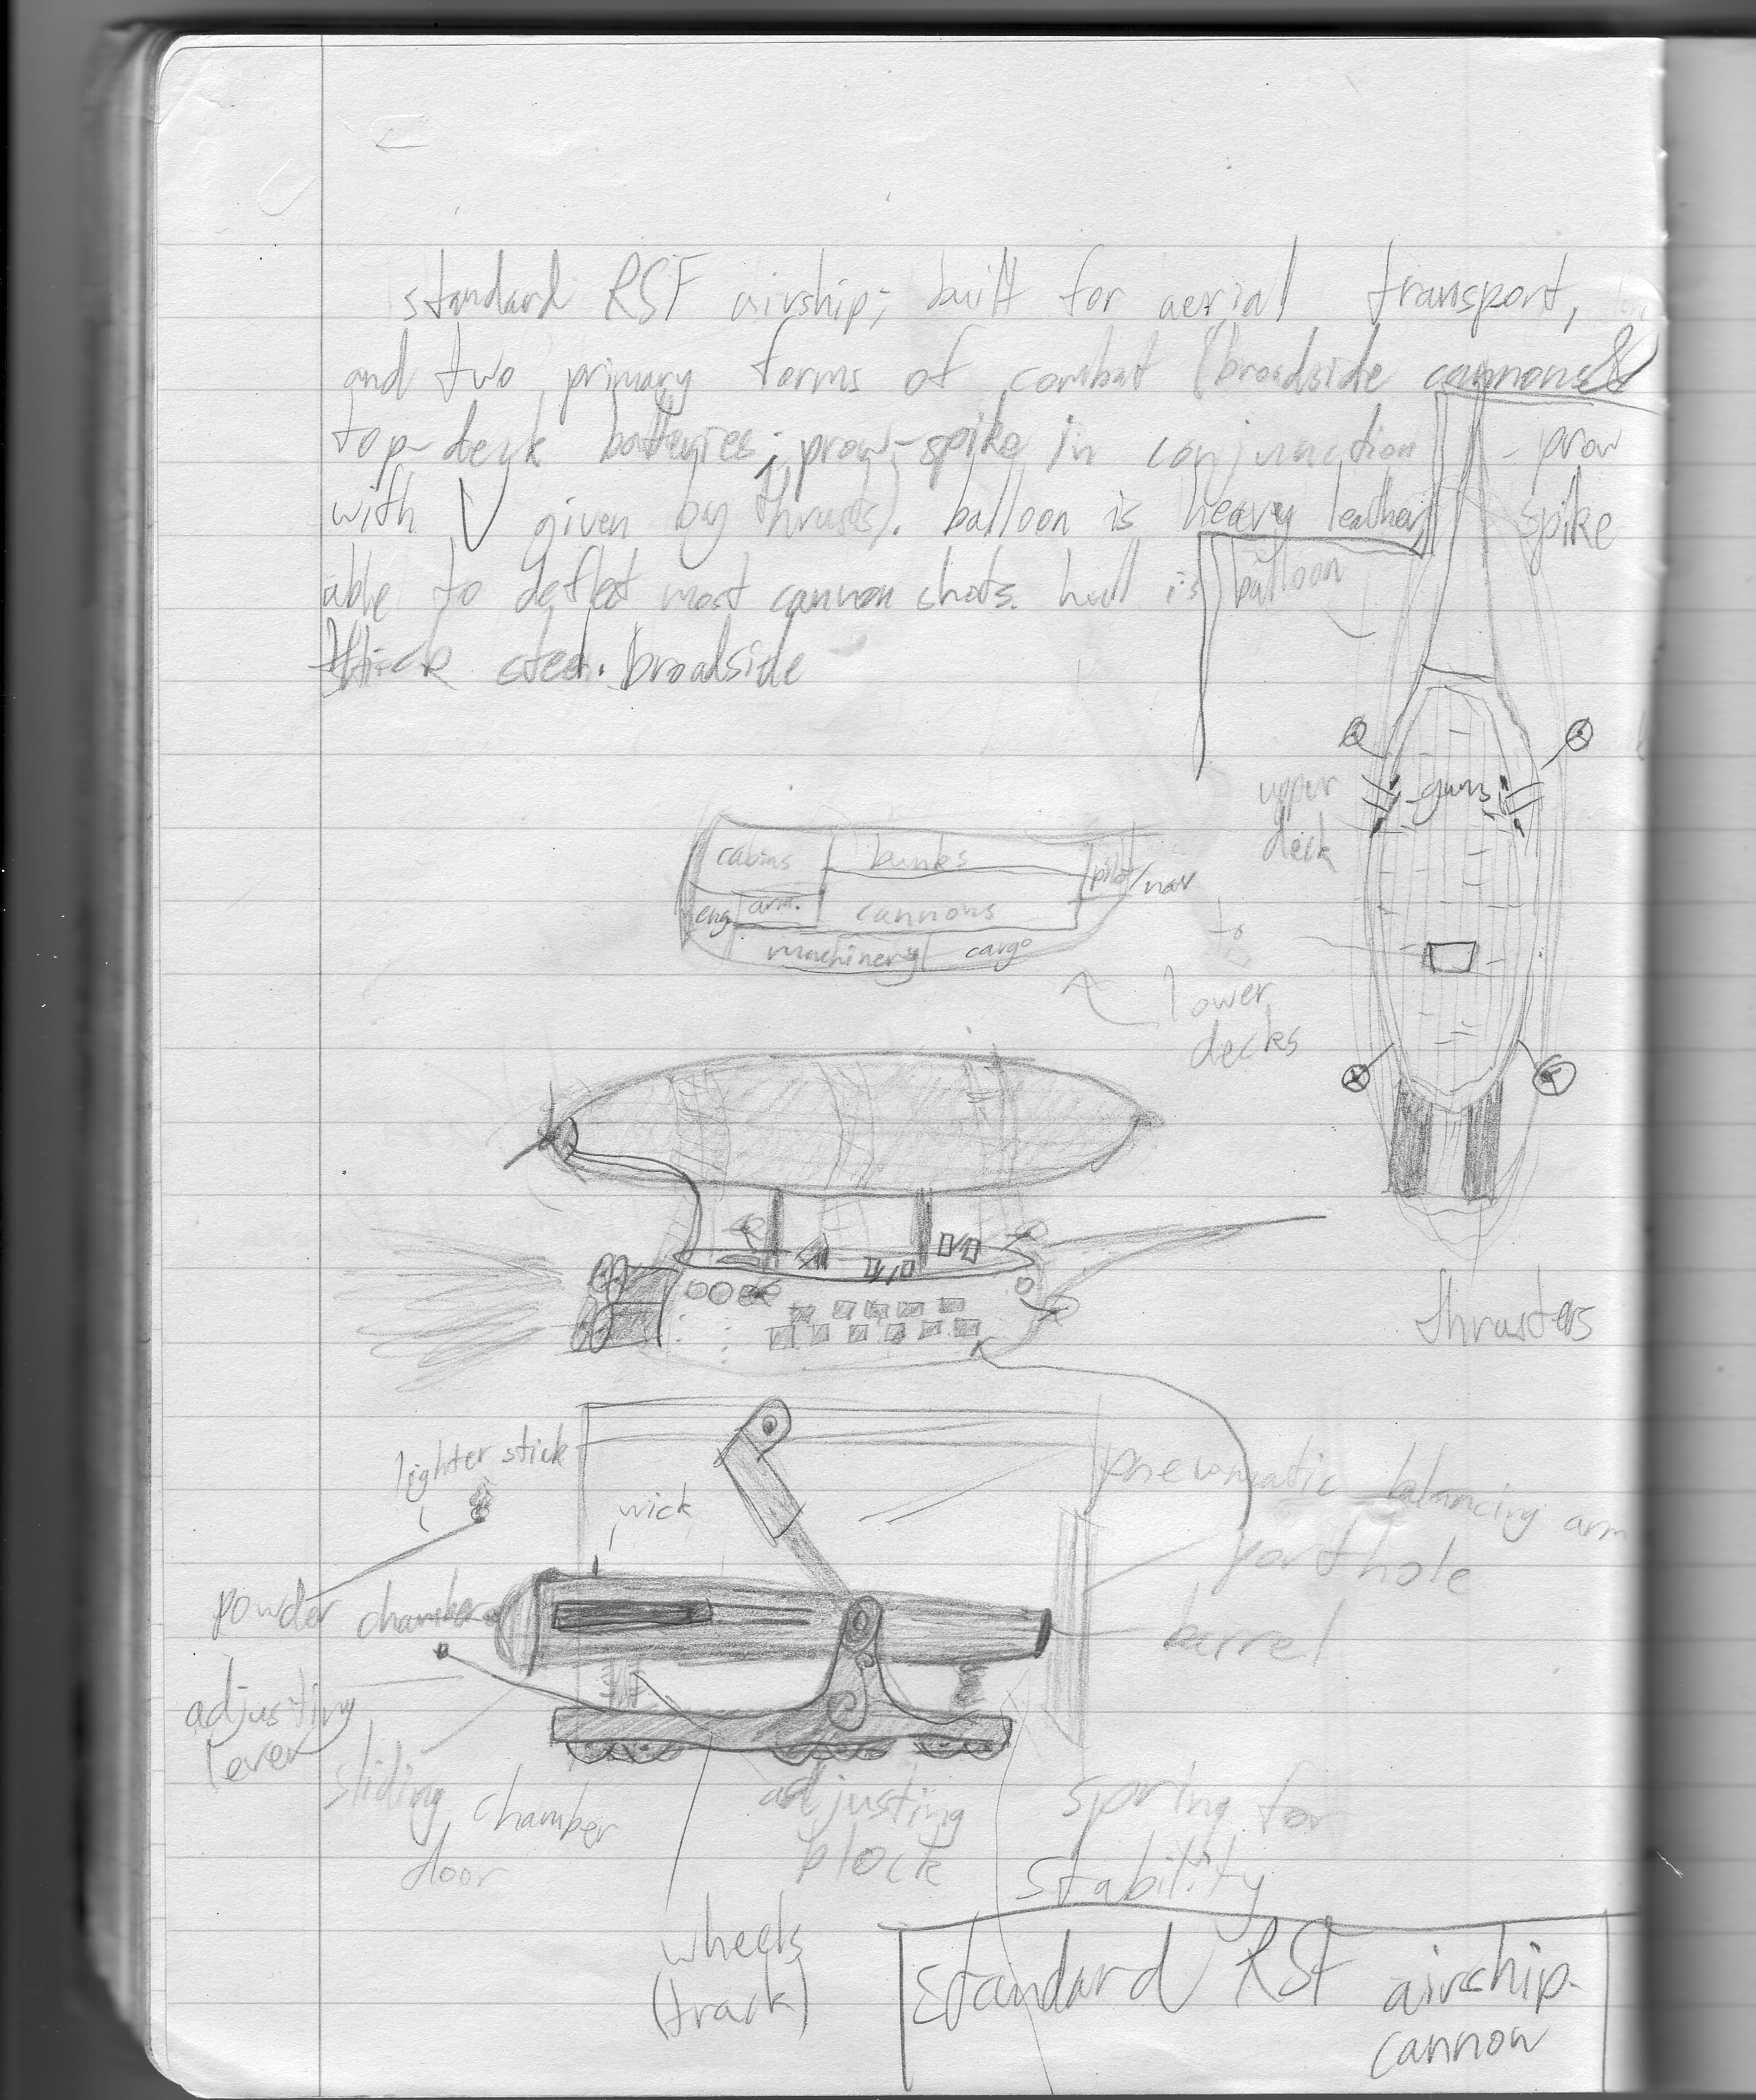 standard RSF airship; built for aerial transport,
and two primary forms of combat (broadside cannons &
top-deck batteries; prow-spike in conjunction
with V given by thrusts). balloon is heavy leather,
able to deflect most cannon shots. hull is
thick steel. broadside
prow
spike
balloon
upper
deck
guns
cabins
bunks
pilot/nav
eng
arm.
cannons
machinery
cargo
to
lower
decks
thrusters
lighter stick
wick
pneumatic balancing arm
porthole
powder chamber
barrel
adjusting
lever
sliding chamber
door
adjusting
block
spring for
stability
wheels
(track)
standard RSF airship-
cannon